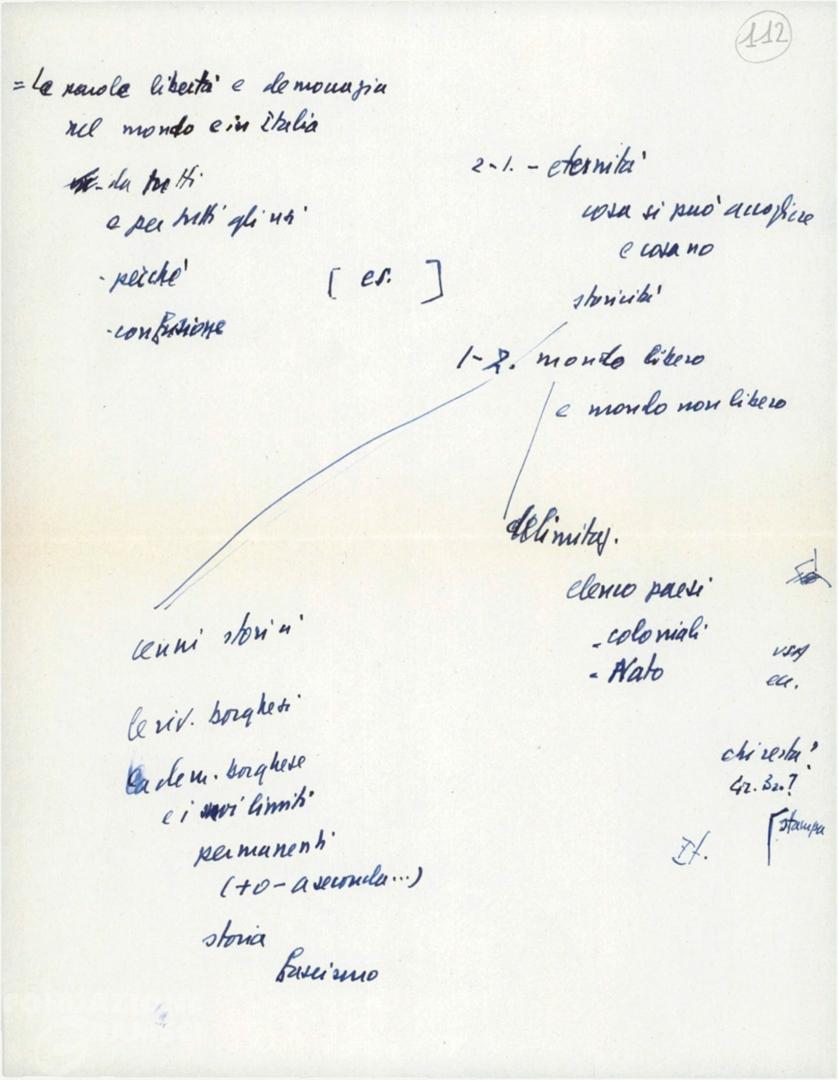 112
= Le parole libertà e democrazia
nel mondo e in Italia
- da tutti
e per tutti gli usi
- perché
[ es. ]
- confusione
2-1. - eternità
cosa si può accogliere
e cosa no
storicità
1-2. mondo libero
e mondo non libero
delimitaz.
elenco paesi
- coloniali
- Nato
USA
ecc.
chi resta?
Gr. Br.?
[stampa
It.
cenni storici
le riv. borghesi
la dem. borghese
e i suoi limiti
permanenti
(+ o - a seconda...)
storia
fascismo